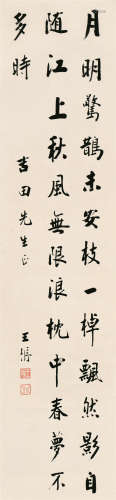 月明驚鵲未安枝一棹飄然影自
随江上秋風無限浪枕中春夢不
多時
吉田先生正
王濤